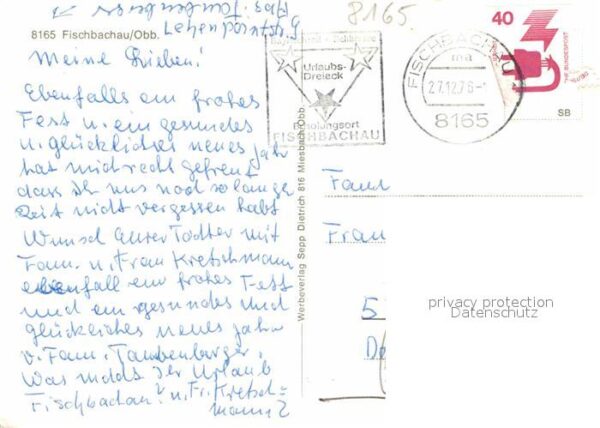 8165 Fischbachau/Obb.
8165
Meine Lieben!
Ebenfalls ein frohes
Fest u. ein gesundes
u. glückliches neues Jahr
hat mich recht gefreut
dass Ihr uns noch so lange
Zeit nicht vergessen habt
Wunsch Eurer Tochter mit
Fam. u. Frau Kretschmann
ebenfall ein frohes Fest
und ein gesundes und
glückliches neues Jahr
v. Fam. Taubenberger.
Was macht Ihr Urlaub
Fischbachau? u. Fr. Kretsch=
mann?
Werbeverlag Sepp Dietrich 816 Miesbach/Obb.
Urlaubs-
Dreieck
Erholungsort
FISCHBACHAU
FISCHBACHAU
ma
27.12.76
8165
40
DEUTSCHE BUNDESPOST
SB
Fam
Frau
5
privacy protection
Datenschutz